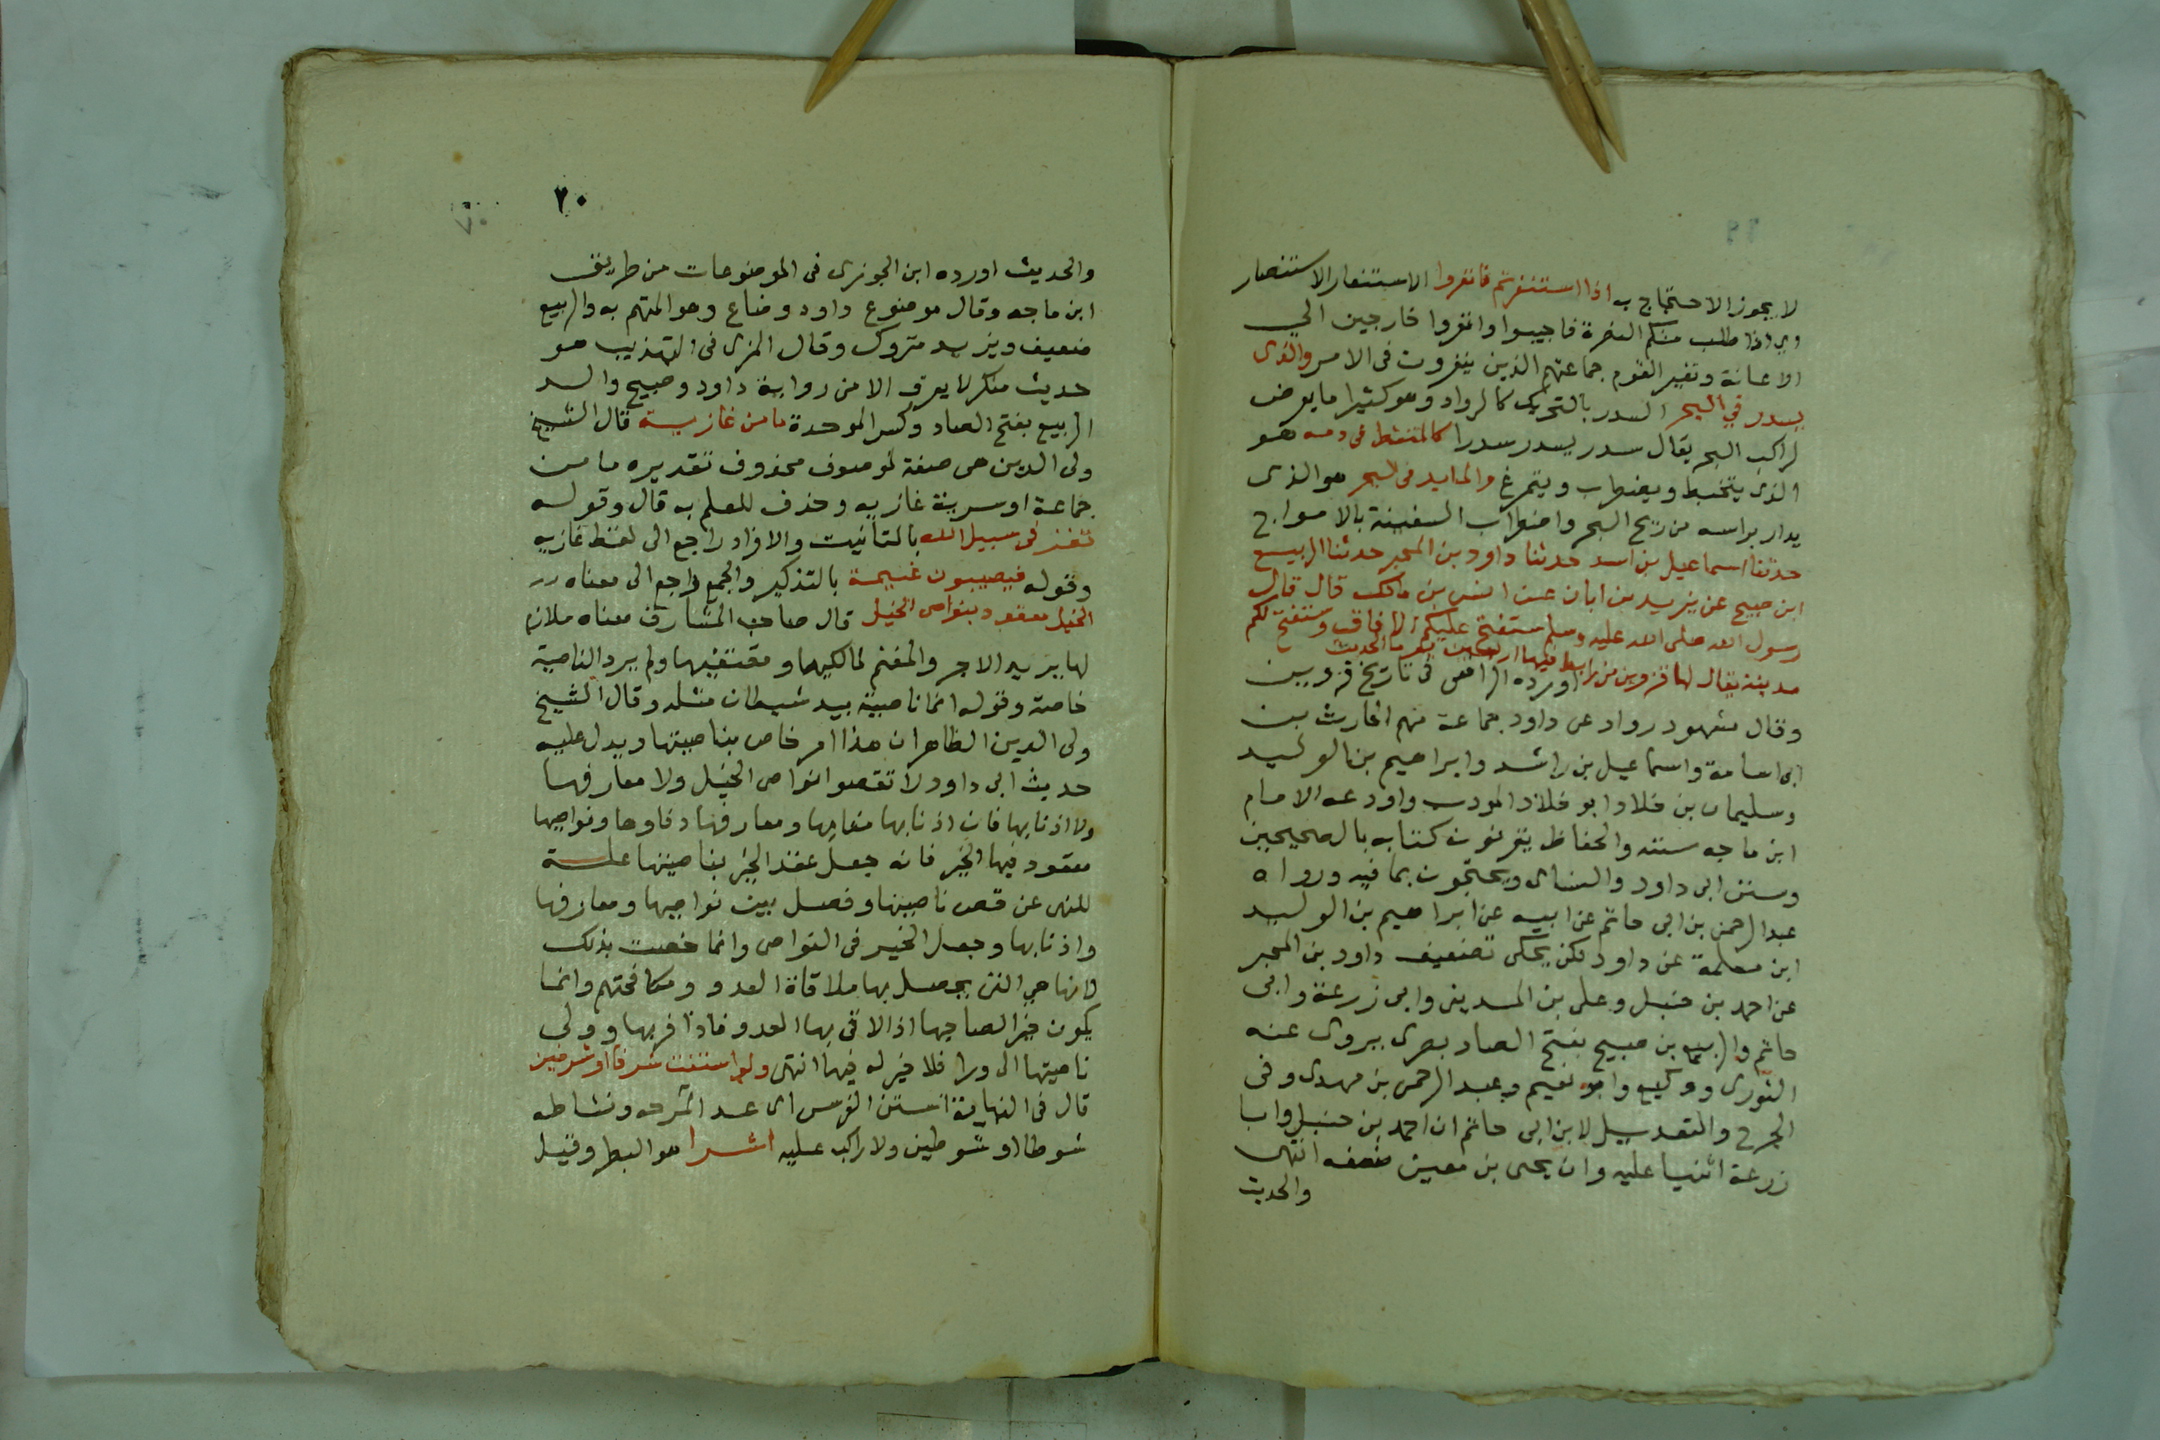 لا يجوز الاحتجاج به اذا استنفرتم فانفروا الاستنفار الاستنصار
اي اذا طلب منكم النصرة فاجيبوا وانفروا خارجين الي
الاعانة ونفير القوم جماعتهم الذين ينفرون فى الامر والذى
يسدر في البحر السدر بالتحريك كالدوار وهو كثيرا ما يعرض
لراكب البحر يقال سدر يسدر سدرا كالمتشحط فى دمه هو
الذى يتخبط ويضطرب ويتمرغ والمايد فى البحر هو الذى
يدار براسه من ريح البحر واضطراب السفينة بالامواج
حدثنا اسماعيل بن اسد حدثنا داود بن المحبر حدثنا الربيع
ابن صبيح عن يزيد بن ابان عن انس بن مالك قال قال
رسول الله صلى الله عليه وسلم ستفتح عليكم الافاق وستفتح لكم
مدينة يقال لها قزوين من رابط فيها اربعين يوما الحديث
اورده الرافعى فى تاريخ قزوين
وقال مشهور رواه عن داود جماعة منهم الحارث بن
ابى اسامة واسماعيل بن راشد وابراهيم بن الوليد
وسليمان بن خلاد ابو خلاد المودب واودعه الامام
ابن ماجه سننه والحفاظ يقرنون كتابه بالصحيحين
وسنن ابى داود والنساى ويحتجون بما فيه ورواه
عبد الرحمن بن ابى حاتم عن ابيه عن ابراهيم بن الوليد
ابن مسلمة عن داود لكن يحكى تضعيف داود بن المحبر
عن احمد بن حنبل وعلى بن المدينى وابى زرعة وابى
حاتم والربيع بن صبيح بفتح الصاد بصرى يروى عنه
الثورى ووكيع وابو نعيم وعبد الرحمن بن مهدى وفى
الجرح والتعديل لابن ابى حاتم ان احمد بن حنبل وابا
زرعة اثنيا عليه وان يحيى بن معين ضعفه انتهى
والحديث
٢٠
والحديث اورده ابن الجوزى فى الموضوعات من طريق
ابن ماجه وقال موضوع داود وضاع وهو المتهم به والربيع
ضعيف ويزيد متروك وقال المزى فى التهذيب هو
حديث منكر لا يعرف الا من رواية داود وصبيح والد
الربيع بفتح الصاد وكسر الموحدة ما من غازية قال الشيخ
ولى الدين هى صفة لموصوف محذوف تقديره ما من
جماعة او سرية غازيه وحذف للعلم به قال وقوله
تغز فى سبيل الله بالتانيث والافراد راجع الى لفظ غازيه
وقوله فيصيبون غنيمة بالتذكير والجمع راجع الى معناه
الخيل معقود بنواصى الخيل قال صاحب المشارق معناه ملازم
لها يريد الاجر والمغنم لمالكيها ومقتنيها ولم يرد الناصية
خاصة وقوله انما ناصيته بيد شيطان مثله وقال الشيخ
ولى الدين الظاهر ان هذا امر خاص بناصيتها ويدل عليه
حديث ابى داود لا تقصوا نواصى الخيل ولا معارفها
ولا اذنابها فان اذنابها مذابها ومعارفها دفاوها ونواصيها
معقود فيها الخير فانه جعل عقد الخير بناصيتها علة
للنهى عن قص ناصيتها وفصل بين نواصيها ومعارفها
واذنابها وجعل الخير فى النواصى وانما خصت بذلك
لانها هي التى يحصل بها ملاقاة العدو ومكافحتهم وانما
يكون خير الصاحبها اذا لاقى بها العدو فاذا فر بها وولى
ناصيتها الى ورا فلا خير له فيها انتهى ولو استنت شرفا او شرفين
قال فى النهاية استن الفرس اى عدا لمرحه ونشاطه
شوطا او شوطين ولا راكب عليه اشرا هو البطر وقيل